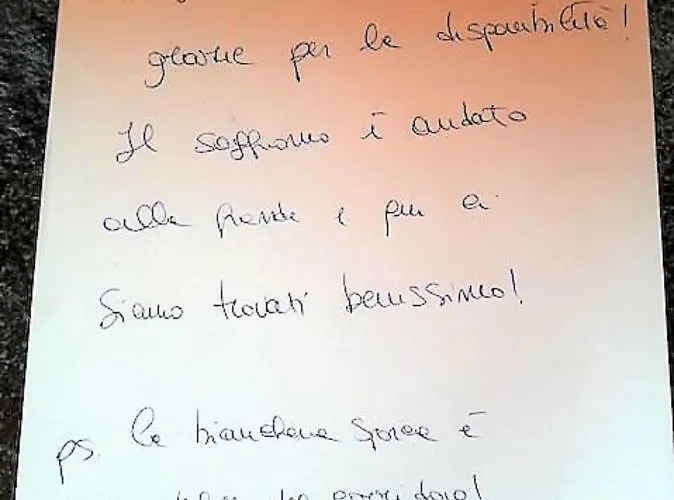 grazie per la disponibilità!
Il soggiorno è andato
alla grande e qui ci
siamo trovati benissimo!
ps. la biancheria sporca è